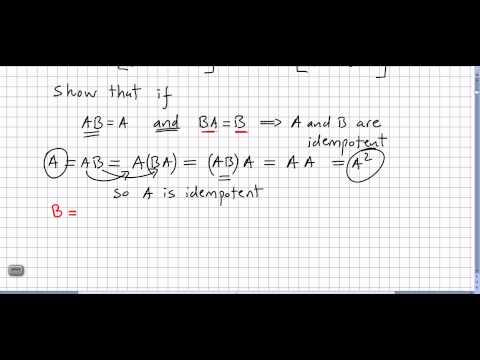 Show that if
AB = A and BA = B ⟹ A and B are
idempotent
A = AB = A(BA) = (AB)A = AA = A²
so A is idempotent
B =